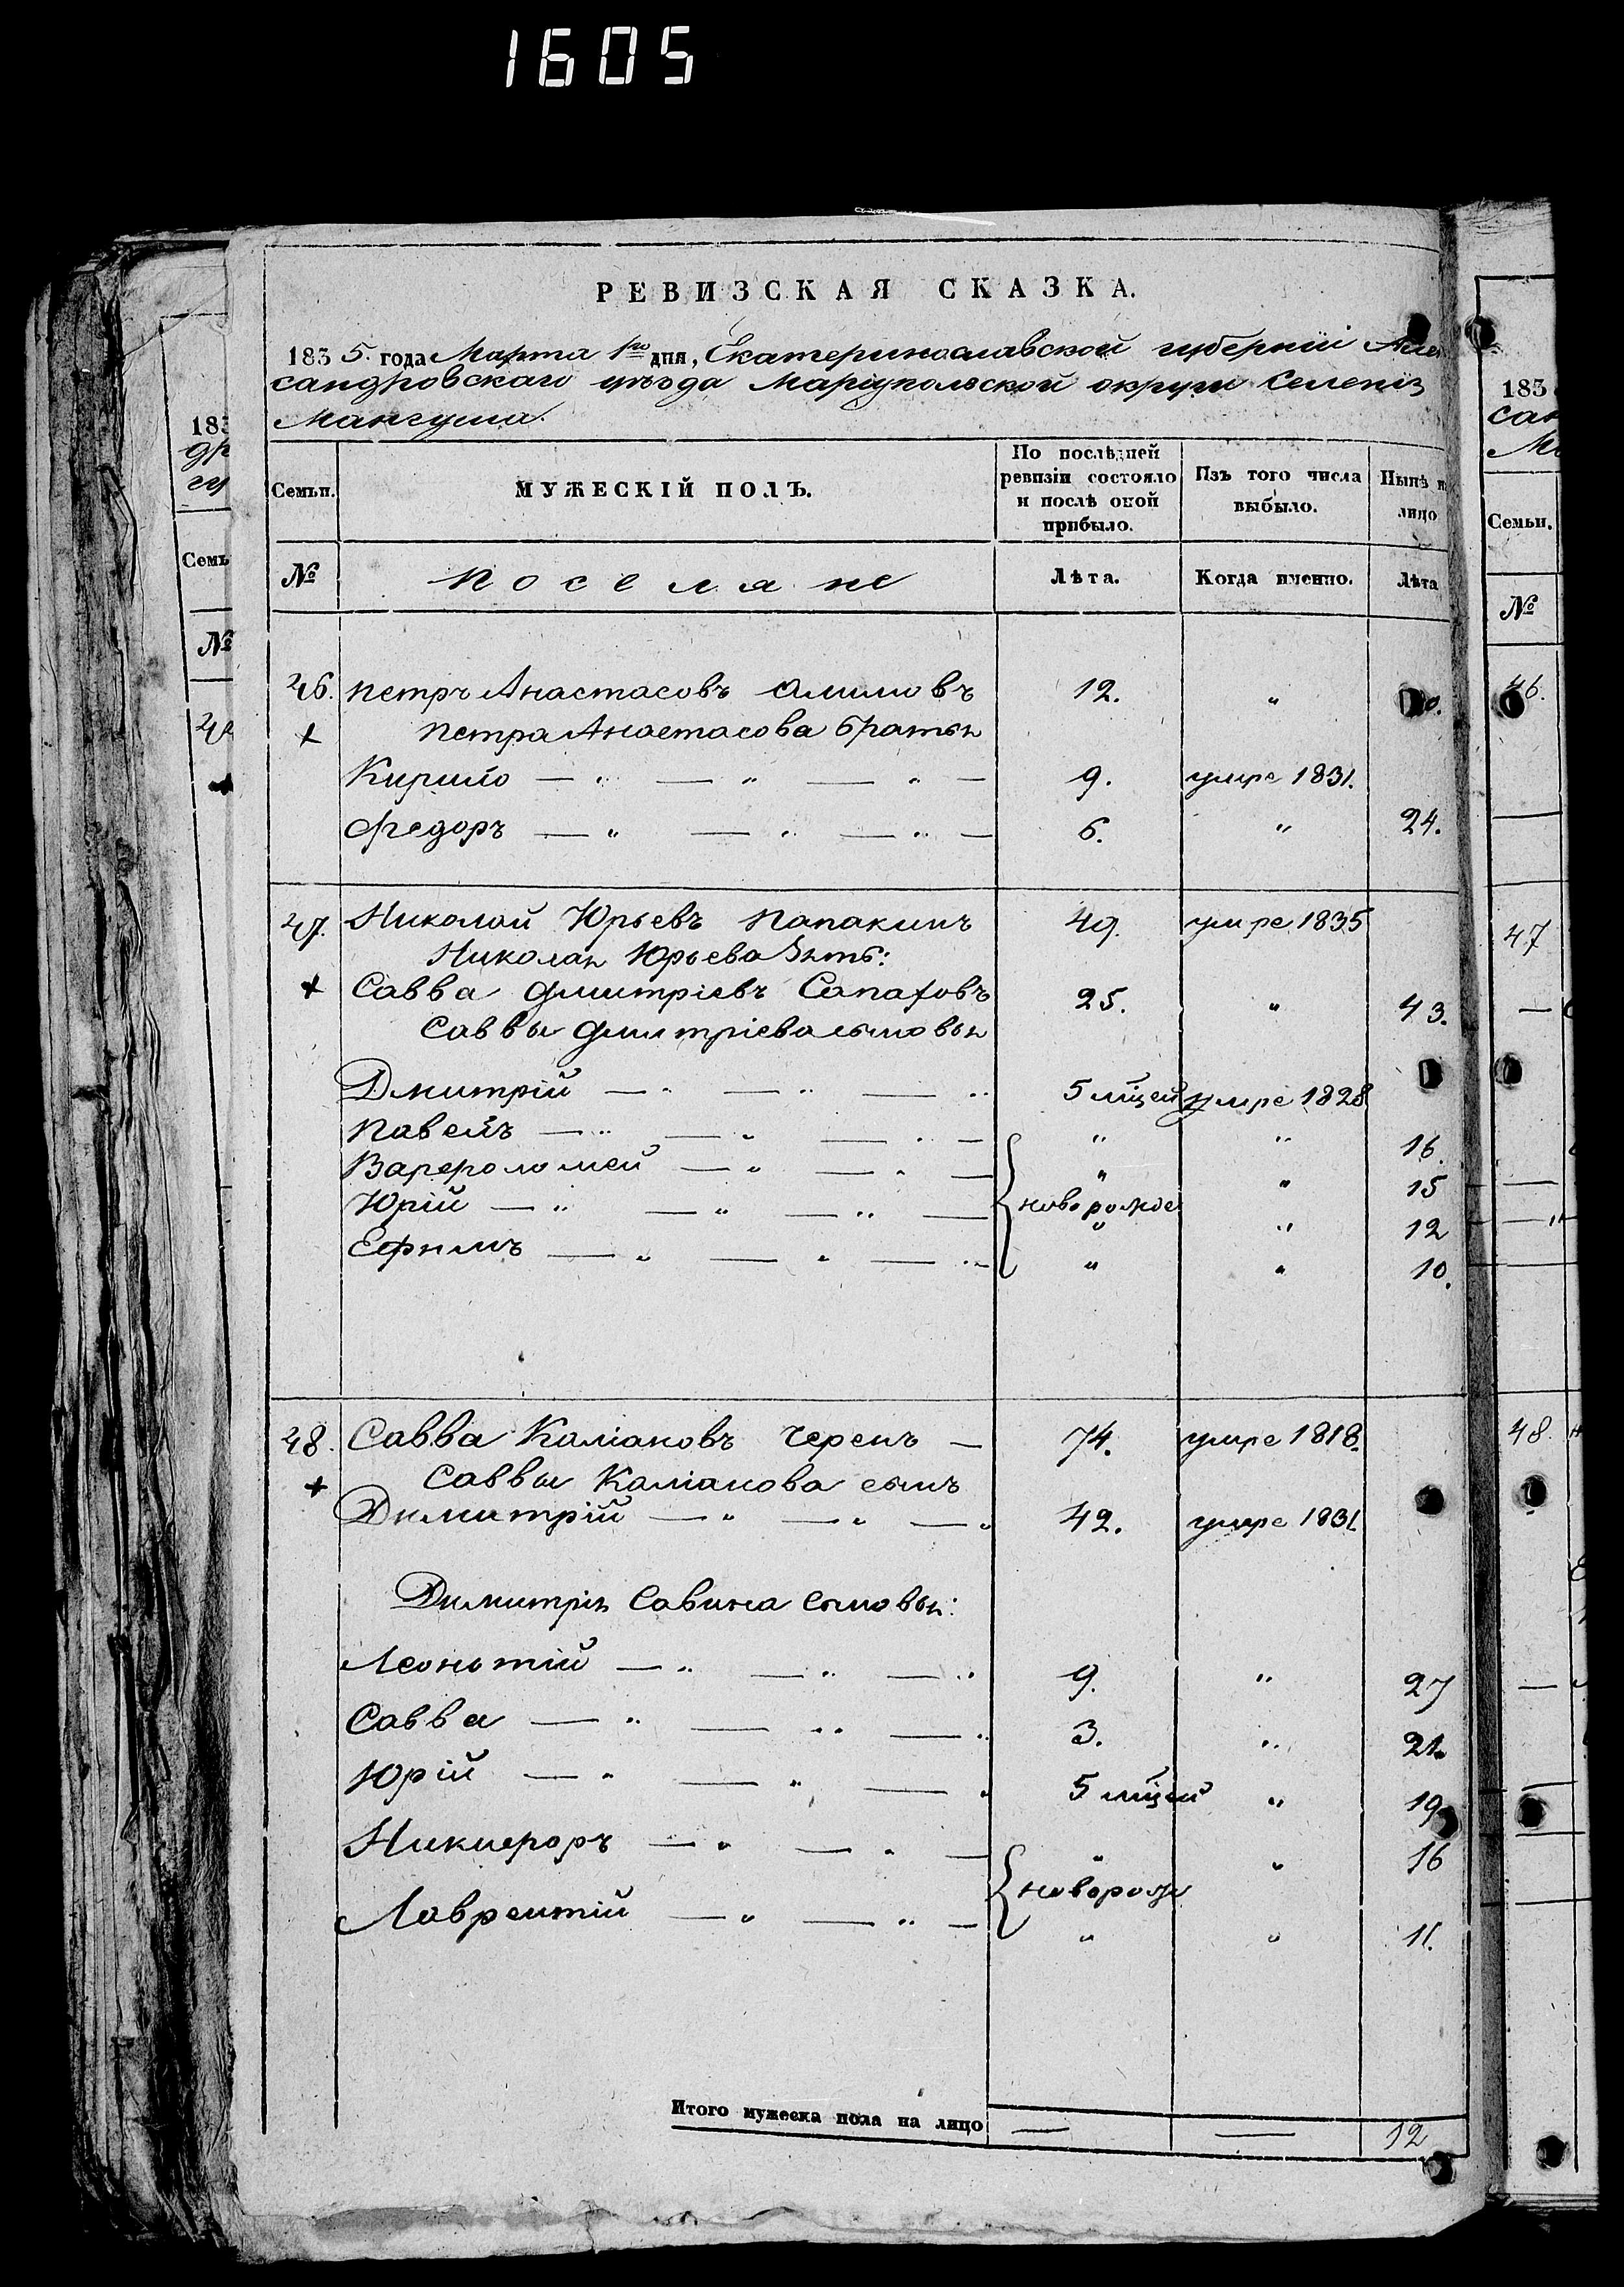 1605
РЕВИЗСКАЯ СКАЗКА.
1835. года Марта 1го дня, Екатеринославской губерніи Алек
сандровскаго уѣзда Маріупольской округи Селенія
Мангуша.
Семьи. МУЖЕСКІЙ ПОЛЪ. По послѣдней ревизіи состояло и послѣ оной прибыло. Изъ того числа выбыло. Нынѣ на лицо
№ Поселяне Лѣта. Когда именно. Лѣта
46. Петръ Анастасовъ 12. "
Петра Анастасова братья
Кирило — " — " — " — 9. умре 1831.
Федоръ — " — " — " — 6. " 24.
47. Николай Юрьевъ Папакинъ 49. умре 1835
Николая Юрьева Зять:
Савва Дмитріевъ 25. " 43.
Саввы Дмитріева сыновья
Дмитрій — " — " — " 5 мцей умре 1828
Павелъ — " — " — " — " " 16.
Варфоломей — " — " — " " 15
Юрій — " — " — " — новорожде " " 12
Ефимъ — " — " — " " " 10.
48. Савва Каліановъ Черенъ — 74. умре 1818.
Саввы Каліанова сынъ
Димитрій — " — " — " 42. умре 1831
Димитрія Савина сыновья:
Леонтій — " — " — " 9. " 27
Савва — " — " — " 3. " 21.
Юрій — " — " — " 5 мцей " 19
Никифоръ — " — " — " " 16
новорож
Лаврентій — " — " — " " 11.
Итого мужеска пола на лицо — — 12
183
др
гу
Семь
№
183
сан
Ма
Семьи.
№
46.
47
48.